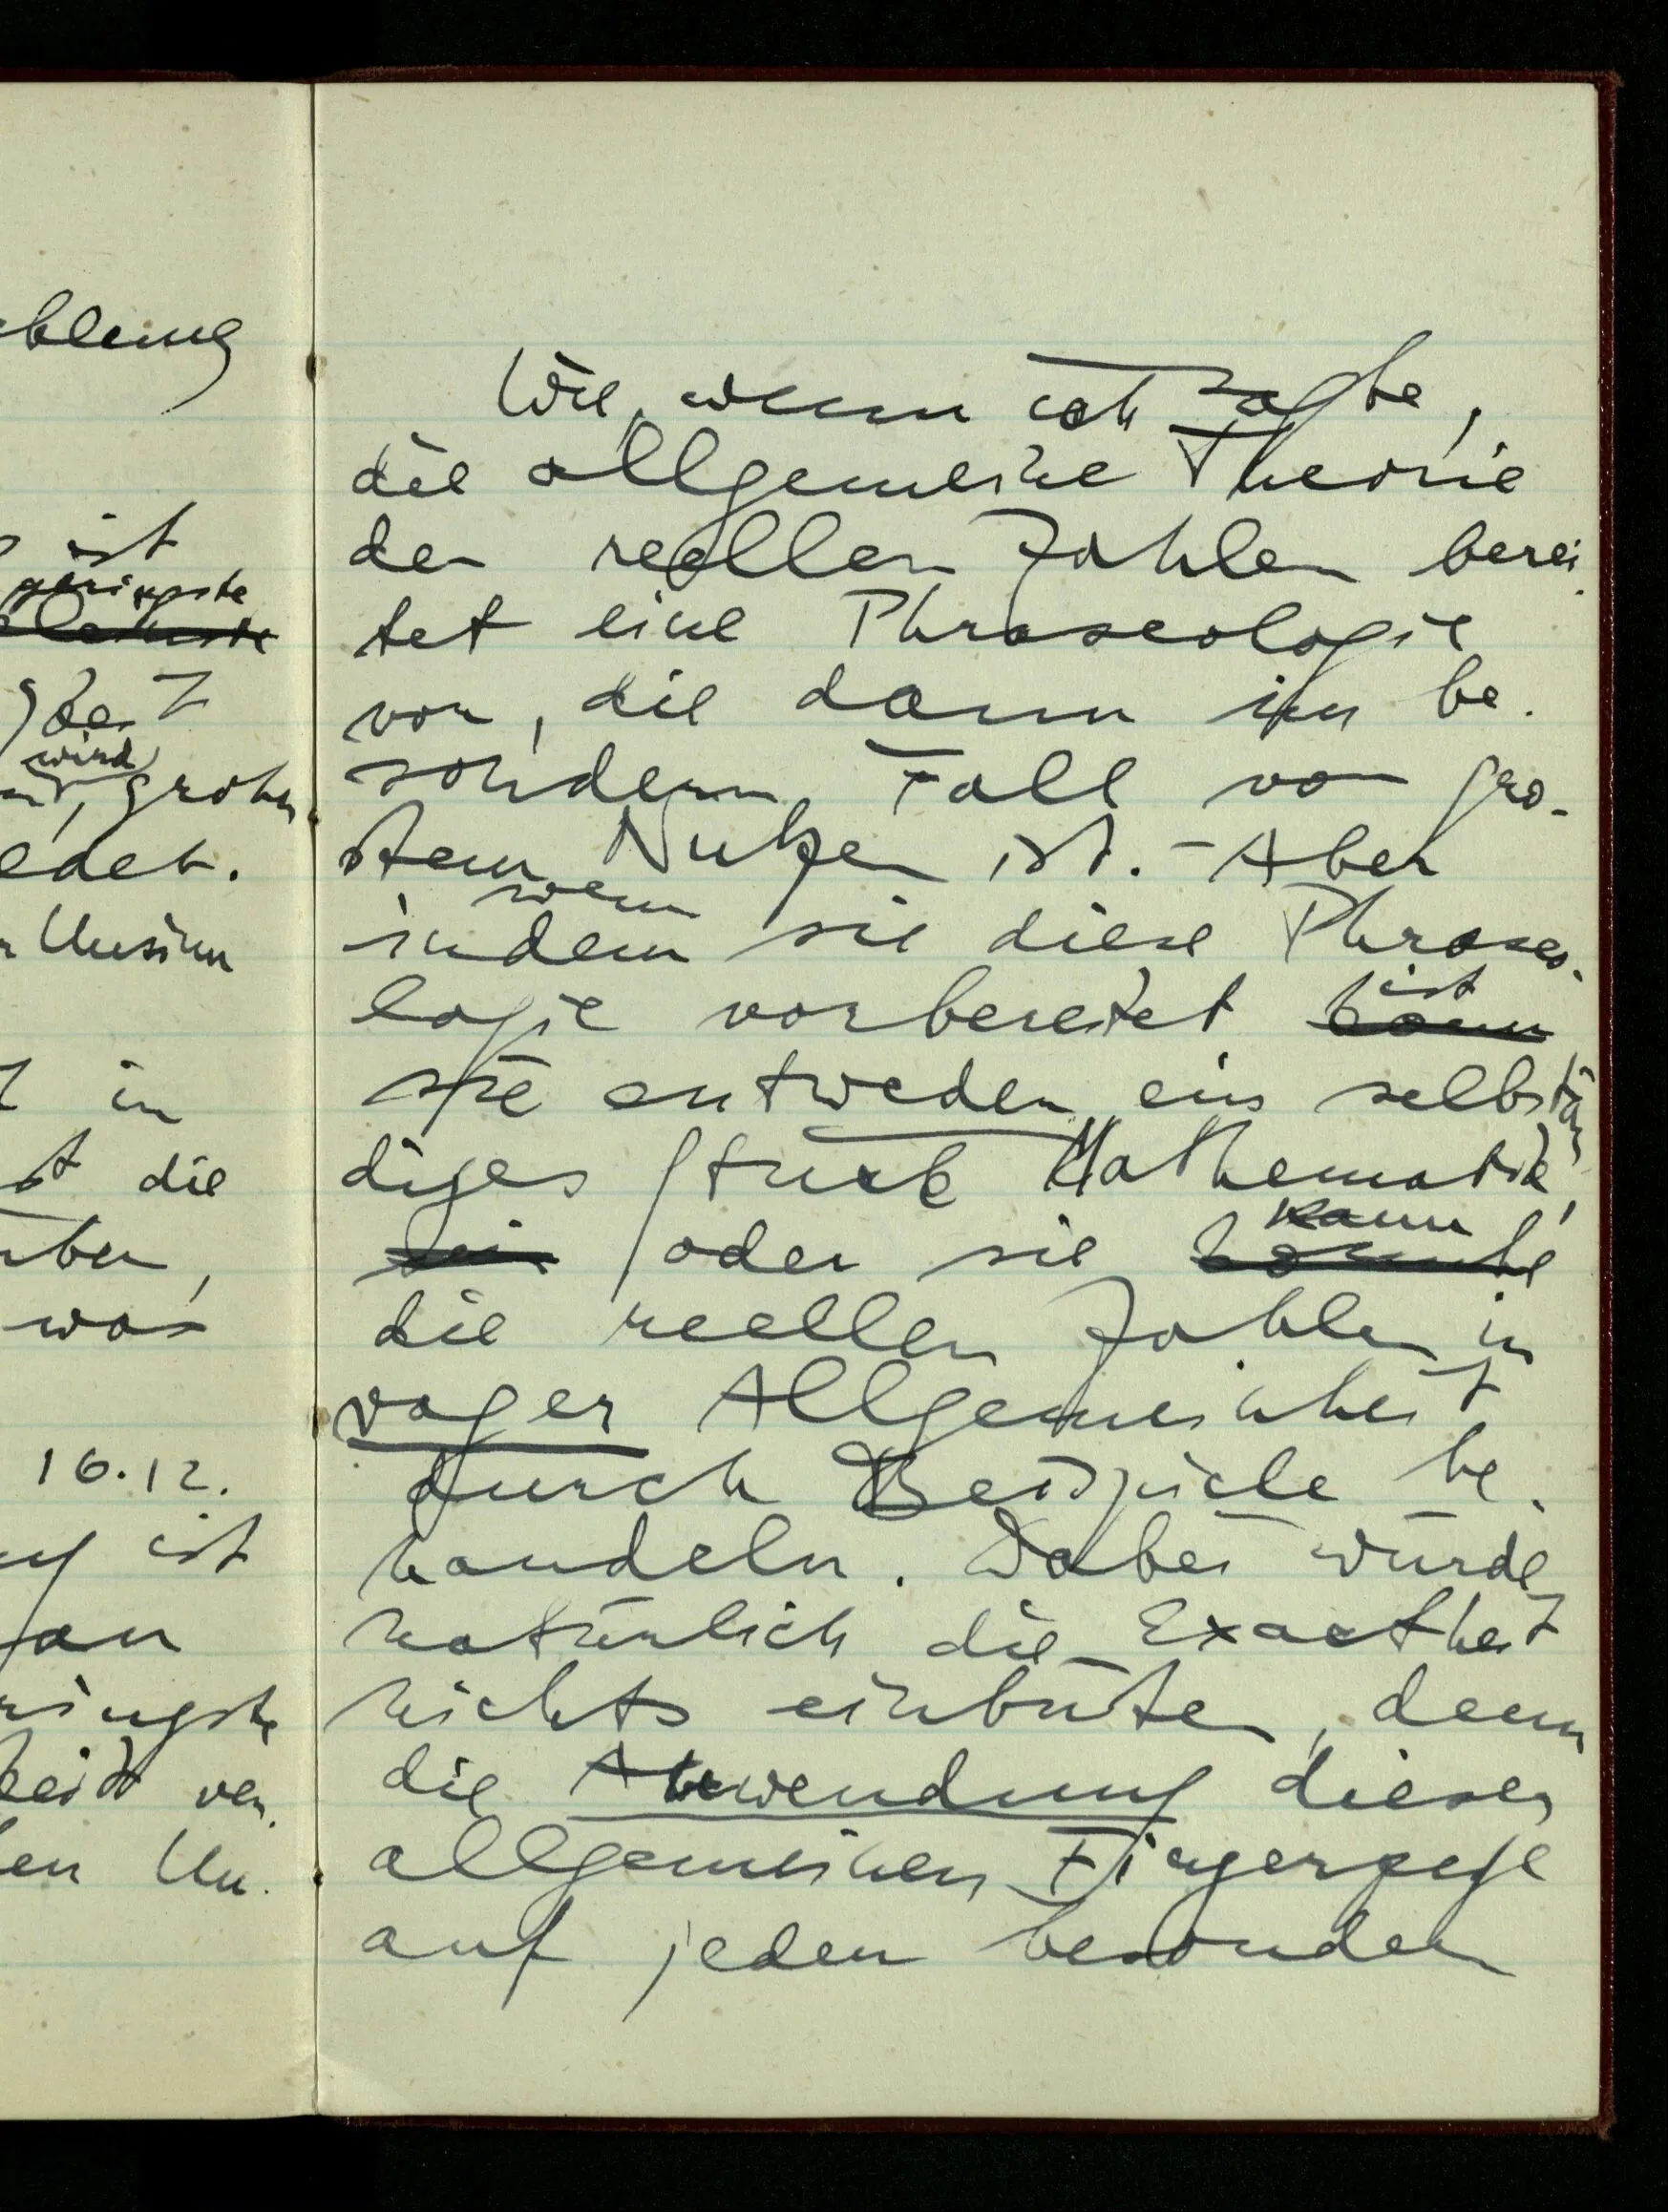 blemg
ist
geringste
kleinste
des
wird
groben
edet.
Unsinn
in
die
ber,
was
16.12.
ist
an
ringste
ver-
en Un-
Wie, wenn ich sagte,
die allgemeine Theorie
der reellen Zahlen berei-
tet eine Phraseologie
vor, die dann im be-
sondern Fall von grö-
stem Nutzen ist. – Aber
wenn
indem sie diese Phraseo-
ist
logie vorbereitet kann
sie entweder ein selbstän-
diges Stück Mathematik,
kann
sein oder sie könnte
die reellen Zahlen in
vager Allgemeinheit
durch Beispiele be-
handeln. Dabei würde
natürlich die Exactheit
nichts einbüßen, denn
die Anwendung dieser
allgemeinen Fingerzeige
auf jeden besondern